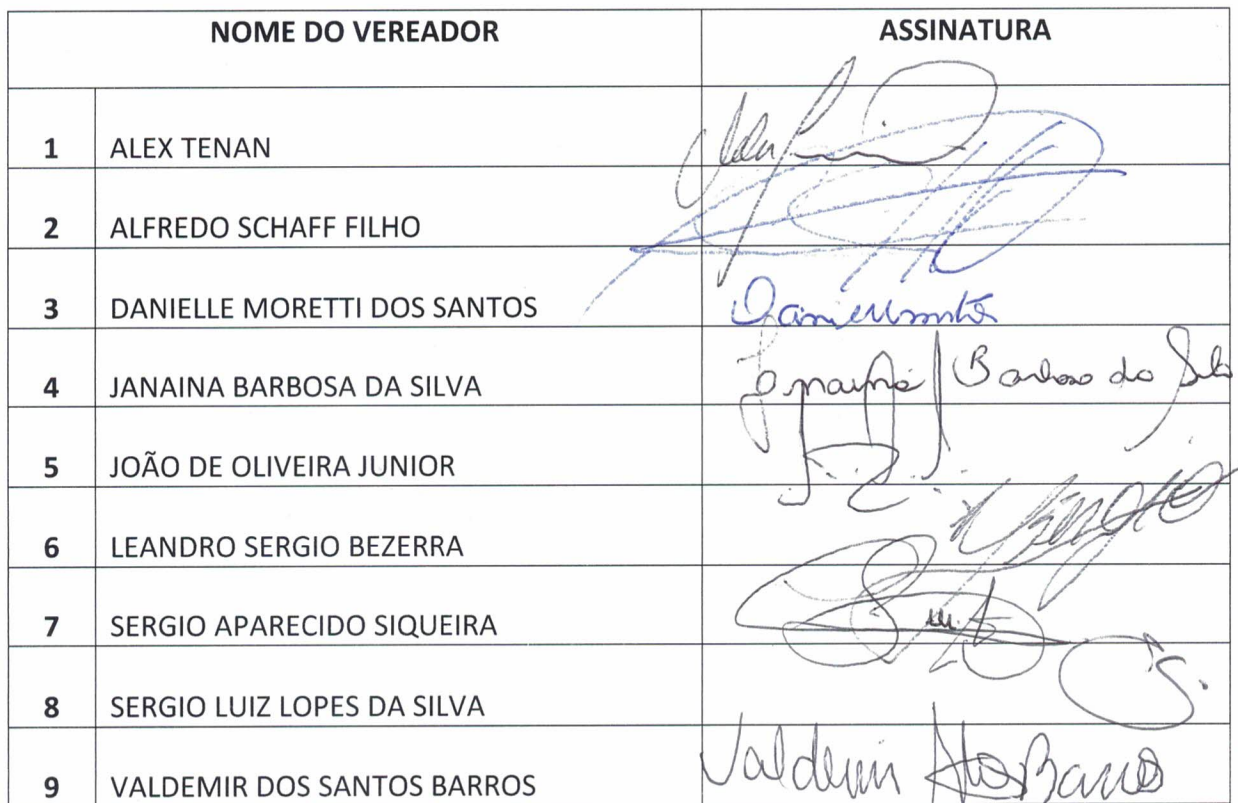 NOME DO VEREADOR ASSINATURA
1 ALEX TENAN
2 ALFREDO SCHAFF FILHO
3 DANIELLE MORETTI DOS SANTOS
4 JANAINA BARBOSA DA SILVA Janaina Barbosa da Silva
5 JOÃO DE OLIVEIRA JUNIOR
6 LEANDRO SERGIO BEZERRA
7 SERGIO APARECIDO SIQUEIRA
8 SERGIO LUIZ LOPES DA SILVA
9 VALDEMIR DOS SANTOS BARROS Valdemir Barros